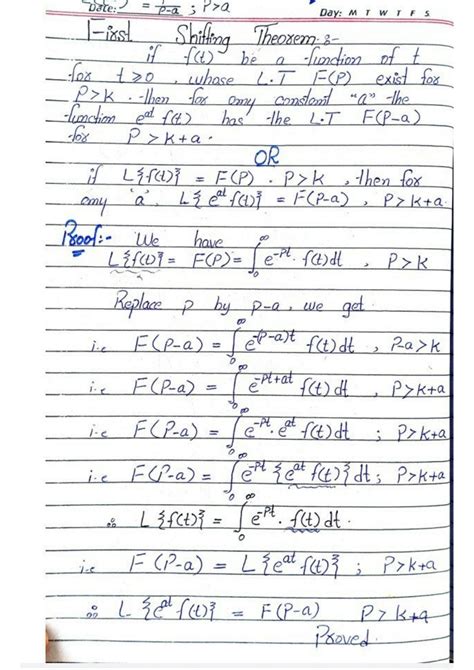 Date: = 1/p-a ; P>a
Day: M T W T F S
First Shifting Theorem :-
if f(t) be a function of t
for t ≥ 0, whose L.T F(P) exist for
P>k. then for any constant "a" the
function e^{at} f(t) has the L.T F(P-a)
for P > k+a.
OR
if L{f(t)} = F(P). P>k, then for
any 'a', L{e^{at} f(t)} = F(P-a), P>k+a.
Proof:- We have
L{f(t)} = F(P) = ∫_0^∞ e^{-pt}. f(t)dt, P>k
Replace p by p-a, we get
i.e F(P-a) = ∫_0^∞ e^{-(p-a)t} f(t)dt, P-a>k
i.e F(P-a) = ∫_0^∞ e^{-pt+at} f(t)dt, P>k+a
i.e F(P-a) = ∫_0^∞ e^{-pt}. e^{at} f(t)dt ; P>k+a
i.e F(P-a) = ∫_0^∞ e^{-pt} {e^{at} f(t)}dt; P>k+a
∴ L{f(t)} = ∫_0^∞ e^{-pt}. f(t)dt.
i.e F(P-a) = L{e^{at} f(t)} ; P>k+a
∴ L{e^{at} f(t)} = F(P-a) P>k+a
Proved.